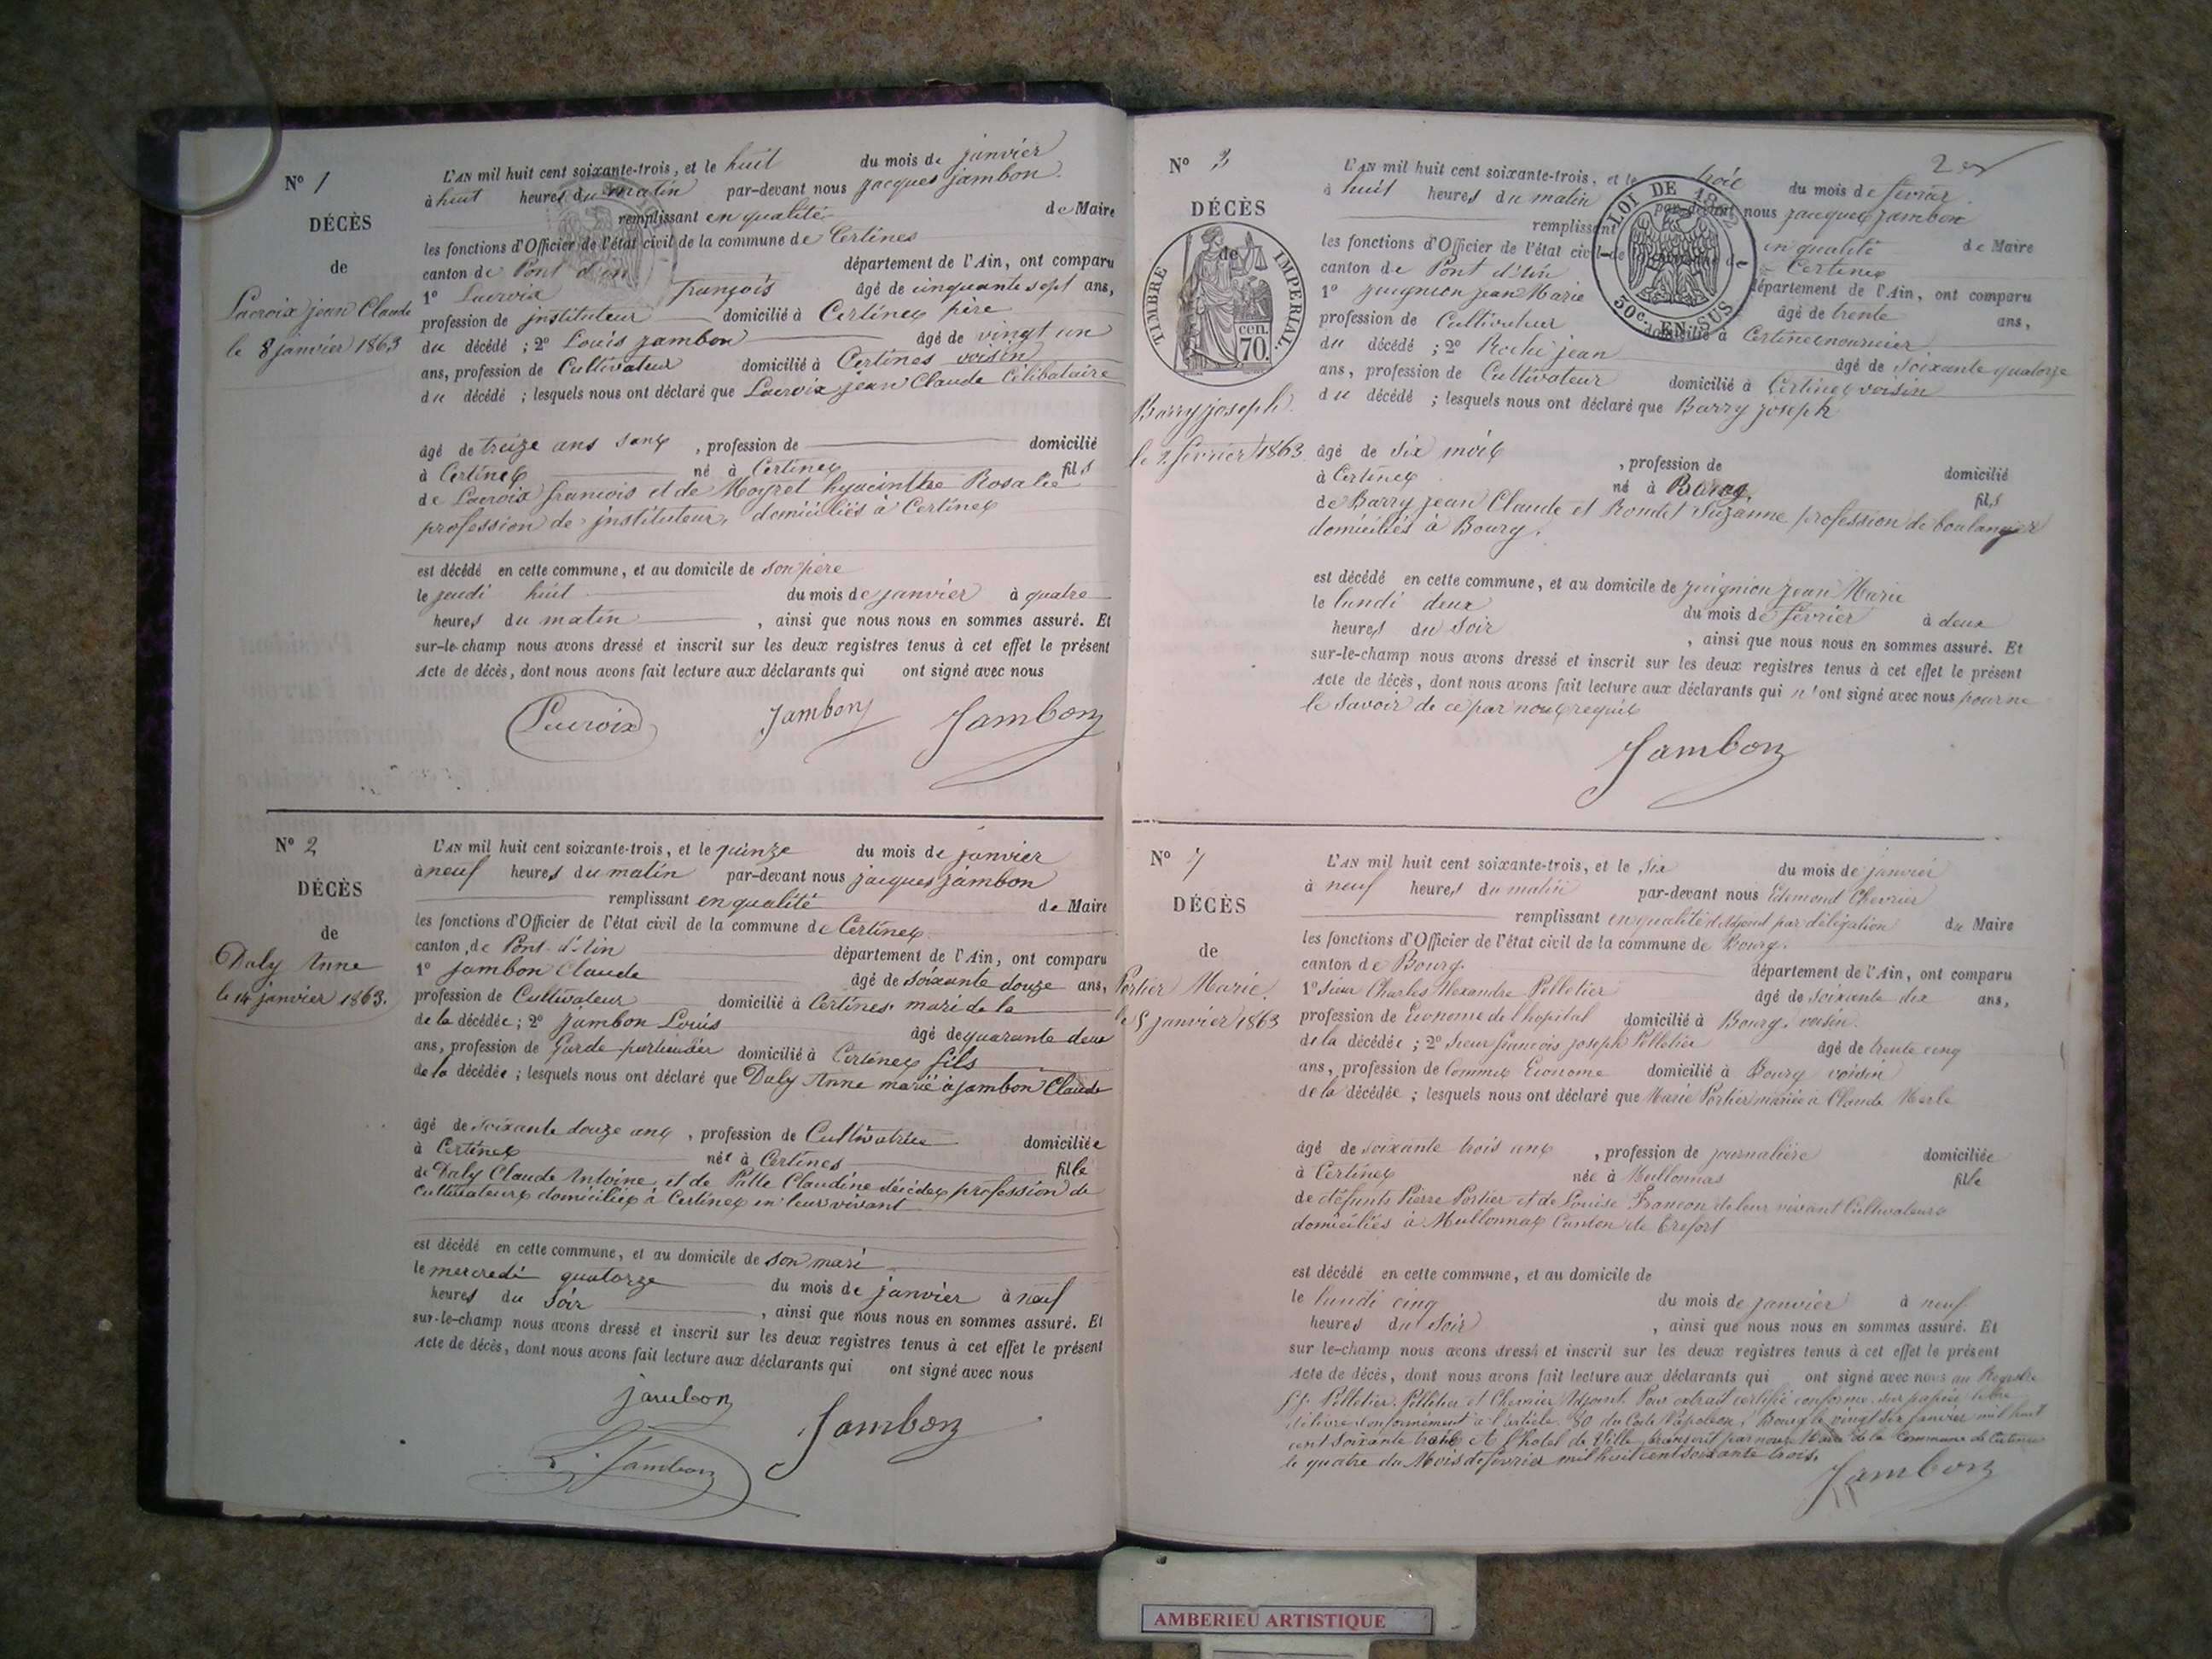 N° 1
DÉCÈS
de
Lacroix jean Claude
le 8 janvier 1863
L'AN mil huit cent soixante-trois, et le huit du mois de janvier
à huit heures du matin par-devant nous jacques jambon
remplissant en qualité de Maire
les fonctions d'Officier de l'état civil de la commune de Certines
canton de Pont d'ain département de l'Ain, ont comparu
1° Lacroix François âgé de cinquante sept ans,
profession de instituteur domicilié à Certines père
du décédé ; 2° Louis jambon âgé de vingt un
ans, profession de Cultivateur domicilié à Certines voisin
du décédé ; lesquels nous ont déclaré que Lacroix jean Claude Célibataire
âgé de treize ans , profession de domicilié
à Certines né à Certines fils
de Lacroix françois et de Moyret hyacinthe Rosalie
profession de instituteur, domiciliés à Certines
est décédé en cette commune, et au domicile de son père
le jeudi huit du mois de janvier à quatre
heures du matin , ainsi que nous nous en sommes assuré. Et
sur-le-champ nous avons dressé et inscrit sur les deux registres tenus à cet effet le présent
Acte de décès, dont nous avons fait lecture aux déclarants qui ont signé avec nous
Lacroix Jambon Jambon
N° 2
DÉCÈS
de
Daly Anne
le 14 janvier 1863.
L'AN mil huit cent soixante-trois, et le quinze du mois de janvier
à neuf heures du matin par-devant nous jacques jambon
remplissant en qualité de Maire
les fonctions d'Officier de l'état civil de la commune de Certines
canton de Pont d'Ain département de l'Ain, ont comparu
1° Jambon Claude âgé de soixante douze ans,
profession de Cultivateur domicilié à Certines mari de la
de la décédée ; 2° Jambon Louis âgé de quarante deux
ans, profession de Garde particulier domicilié à Certines fils
de la décédée ; lesquels nous ont déclaré que Daly Anne marié à jambon Claude
âgé de soixante douze ans , profession de Cultivatrice domiciliée
à Certines née à Certines fille
de Daly Claude Antoine et de Claudine décédés profession de
Cultivateurs domiciliés à Certines en leur vivant
est décédé en cette commune, et au domicile de son mari
le mercredi quatorze du mois de janvier à neuf
heures du soir , ainsi que nous nous en sommes assuré. Et
sur-le-champ nous avons dressé et inscrit sur les deux registres tenus à cet effet le présent
Acte de décès, dont nous avons fait lecture aux déclarants qui ont signé avec nous
jambon
Jambon
L. Jambon
2
N° 3
DÉCÈS
de
TIMBRE IMPERIAL.
cen. 70.
LOI DE 1862
50c. EN SUS
Barry joseph
le 2 février 1863
L'AN mil huit cent soixante-trois, et le trois du mois de février
à huit heures du matin par-devant nous jacques jambon
remplissant en qualité de Maire
les fonctions d'Officier de l'état civil de la commune de Certines
canton de Pont d'Ain département de l'Ain, ont comparu
1° jean Marie âgé de trente ans,
profession de Cultivateur domicilié à Certines nouricier
du décédé ; 2° Roche jean âgé de soixante quatorze
ans, profession de Cultivateur domicilié à Certines voisin
du décédé ; lesquels nous ont déclaré que Barry joseph
âgé de six mois , profession de domicilié
à Certines né à Bourg, fils
de Barry jean Claude et Rondet Suzanne profession de boulanger
domiciliés à Bourg.
est décédé en cette commune, et au domicile de jean Marie
le lundi deux du mois de février à deux
heures du soir , ainsi que nous nous en sommes assuré. Et
sur-le-champ nous avons dressé et inscrit sur les deux registres tenus à cet effet le présent
Acte de décès, dont nous avons fait lecture aux déclarants qui n'ont signé avec nous pour ne
le savoir de ce par nous requis
Jambon
N°
DÉCÈS
de
Portier Marie
le 5 janvier 1863
L'AN mil huit cent soixante-trois, et le six du mois de janvier
à neuf heures du matin par-devant nous Edemond Chevrier
remplissant en qualité d'adjoint par délégation du Maire
les fonctions d'Officier de l'état civil de la commune de Bourg.
canton de Bourg département de l'Ain, ont comparu
1° sieur Charles Alexandre Pelletier âgé de soixante dix ans,
profession de Econome de l'hopital domicilié à Bourg, voisin
de la décédée ; 2° sieur françois joseph Pelletier âgé de trente cinq
ans, profession de Commis Econome domicilié à Bourg voisin
de la décédée ; lesquels nous ont déclaré que Marie Portier mariée à Claude Merle
âgé de soixante trois ans , profession de journalière domiciliée
à Certines née à Meillonnas fille
de défunts Pierre Portier et de Louise Françon de leur vivant Cultivateurs
domiciliés à Meillonnas Canton de Treffort
est décédé en cette commune, et au domicile de
le lundi cinq du mois de janvier à neuf
heures du soir , ainsi que nous nous en sommes assuré. Et
sur le-champ nous avons dressé et inscrit sur les deux registres tenus à cet effet le présent
Acte de décès, dont nous avons fait lecture aux déclarants qui ont signé avec nous au Registre
Pelletier, Pelletier et Chevrier Adjoint. Pour extrait certifié conforme sur papier libre
délivré conformément à l'article 80 du Code Napoléon, Bourg le vingt six janvier mil huit
cent soixante trois A l'hotel de Ville transcrit par nous Maire de la Commune de Certines
le quatre du Mois de février mil huit cent soixante trois.
Jambon
AMBERIEU ARTISTIQUE